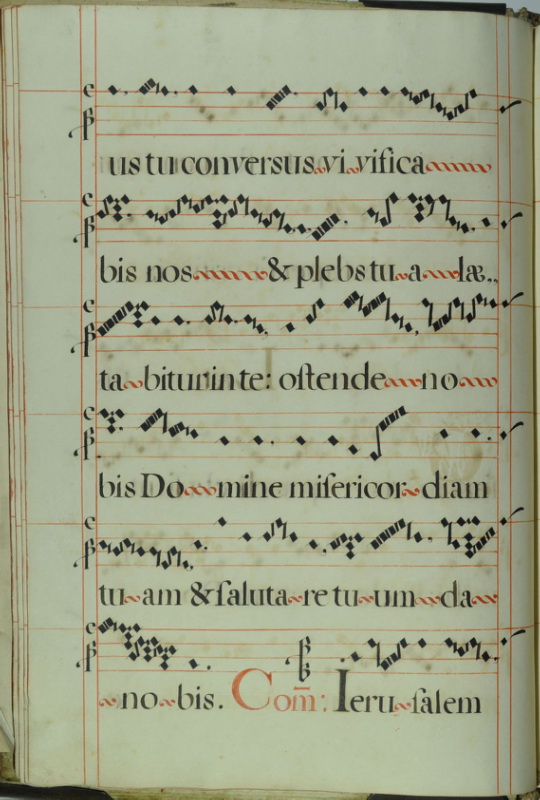 us tu conversus vi vifica
bis nos & plebs tu a læ
ta bitur in te: oſtende no
bis Do mine miſericor diam
tu am & ſaluta re tu um da
no bis. Com̄: Ieru ſalem